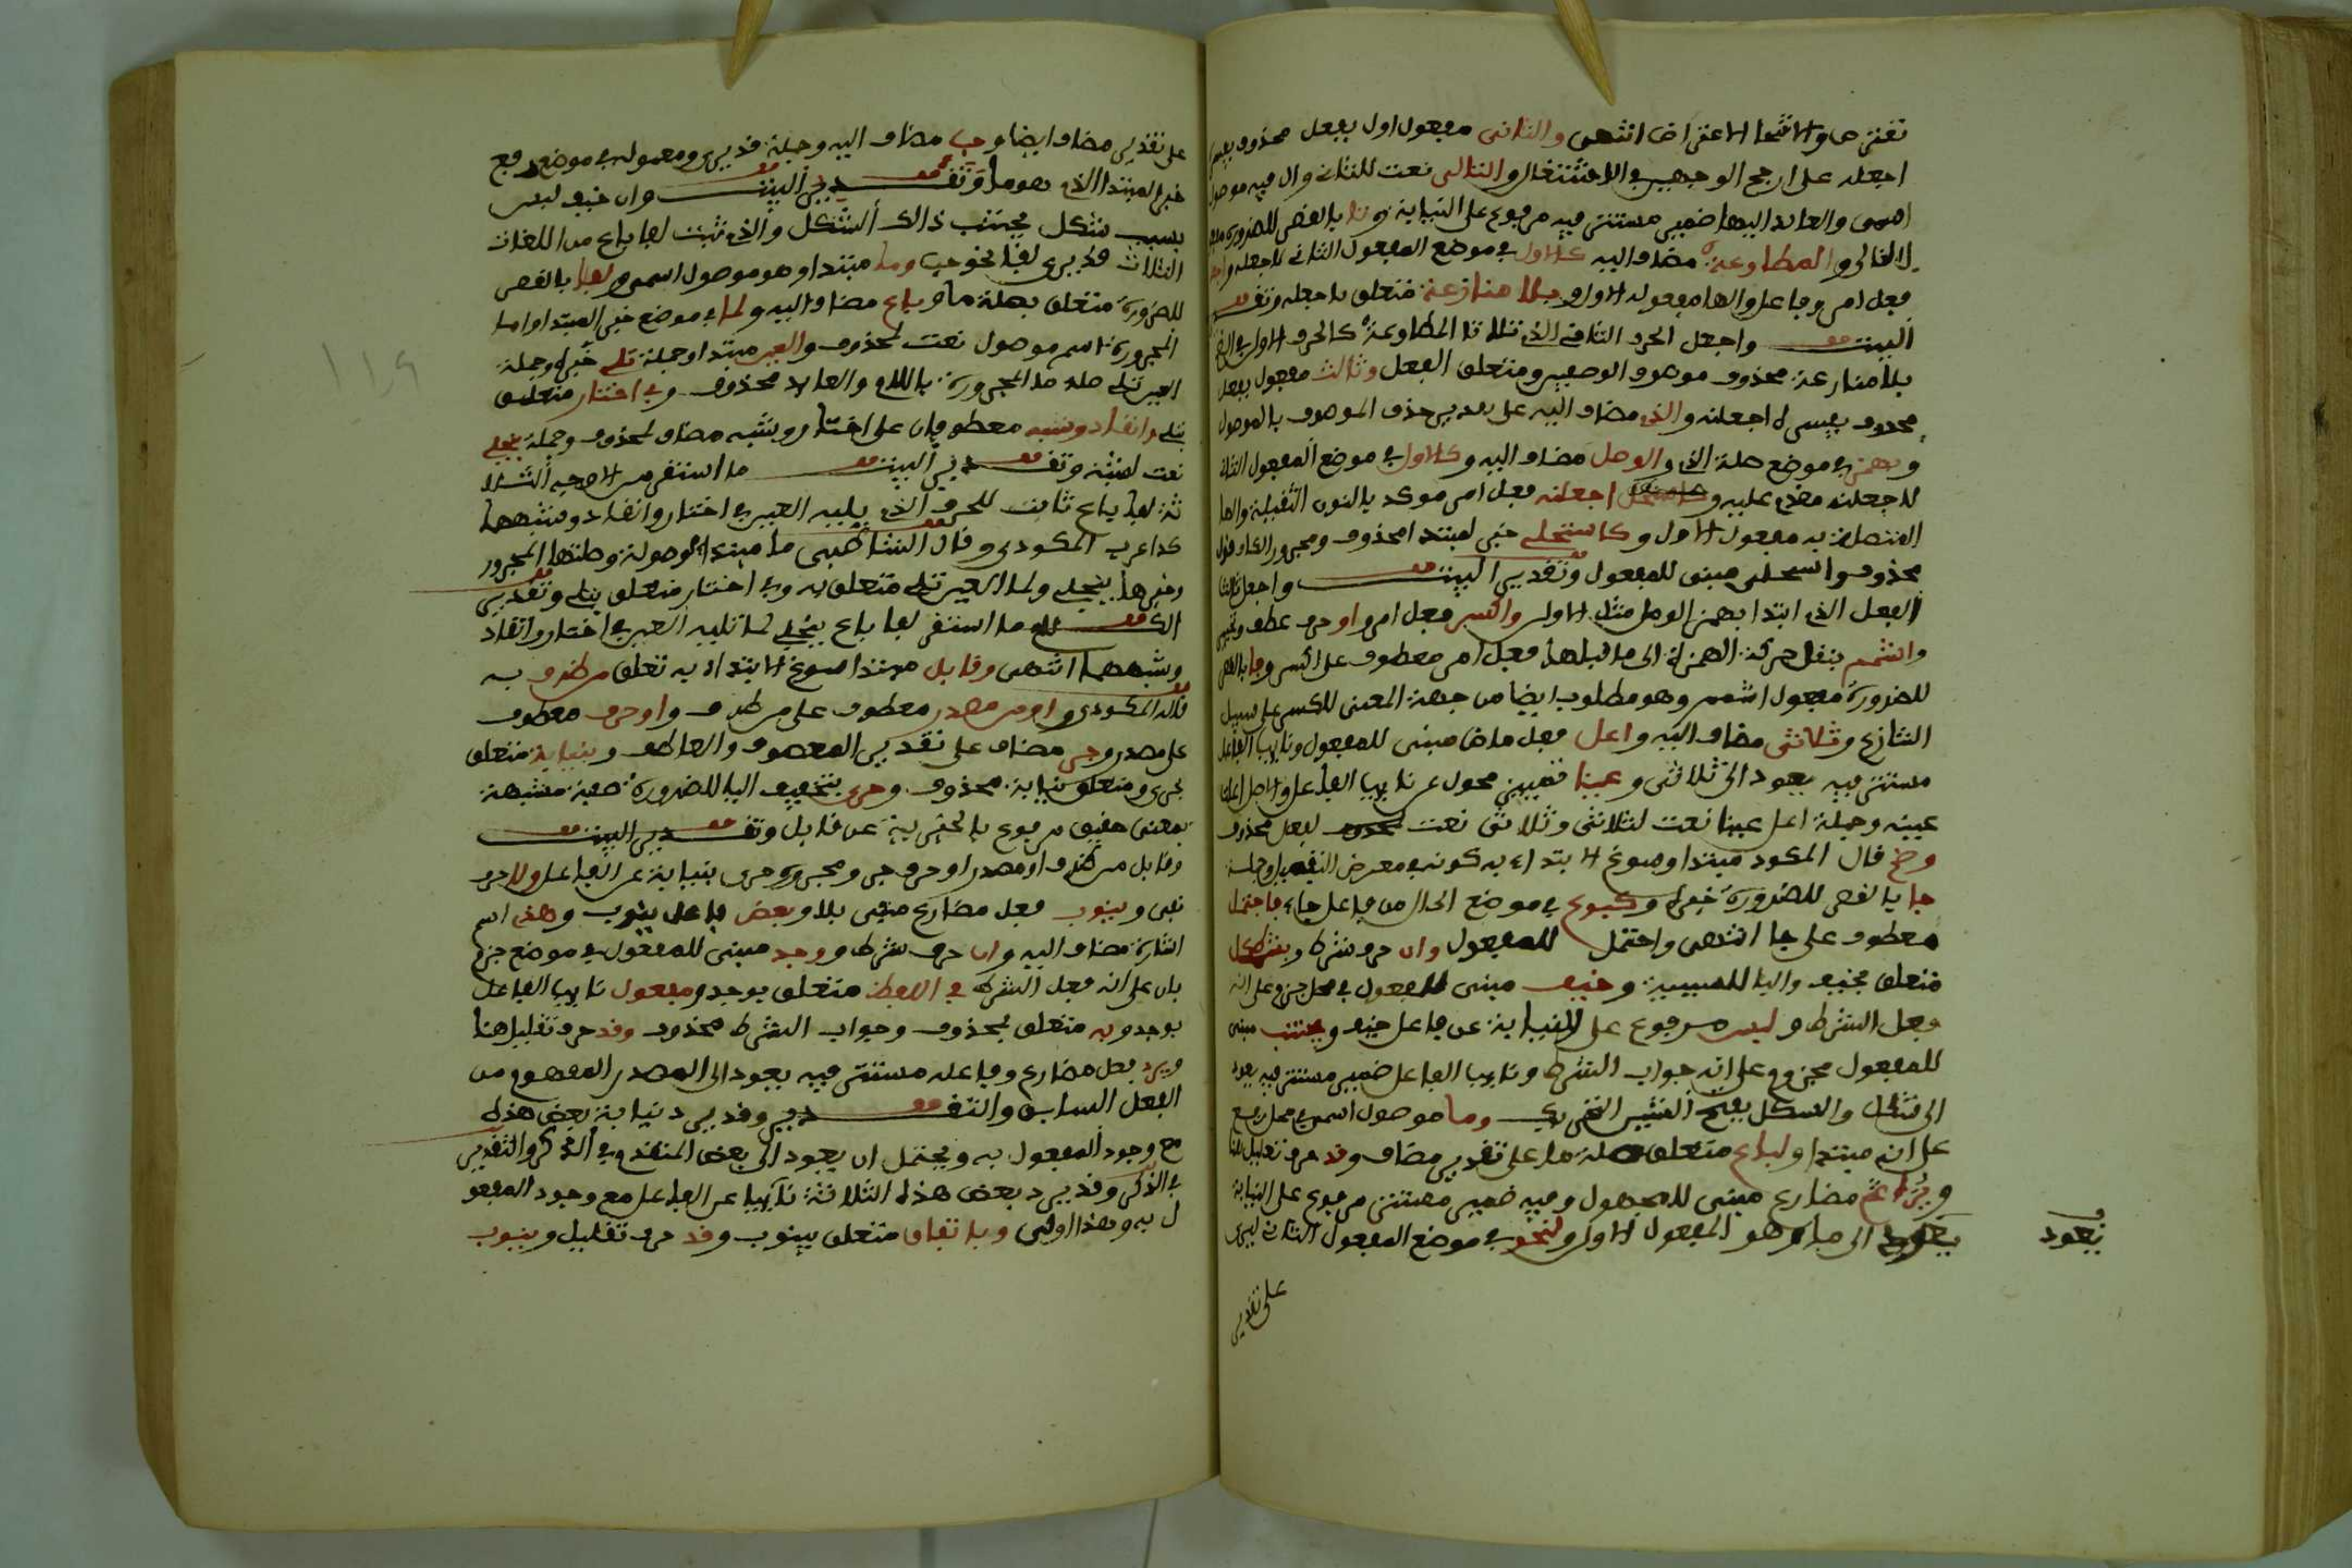 تقترحا والانتحا الاعتراض انتهى والثانى مفعول اول بفعل محذوف يفسره
اجعله على ارجح الوجهين في الاشتغال والتالى نعت للثانى وال فيه موصول
اسمى والعايد اليها ضمير مستتر فيه مرفوع على النيابة وتا بالقصر للضرورة مفعول
لالتالى والمطاوعة مضاف اليه كالاول في موضع المفعول الثانى لاجعله واجعله
فعل امر وفاعل والها مفعوله الاول وبلا منازعة متعلق باجعله وتقدير
البيت واجعل الحرف الثانى الذى تلا تا المطاوعة كالحرف الاول في الضم
بلا منازعة محذوف موصوف الوصفين ومتعلق الفعل وثالث مفعول بفعل
محذوف يفسره اجعلنه والذى مضاف اليه على تقدير حذف الموصوف بالموصول
وبهمز في موضع صلة الذى والوصل مضاف اليه وكالاول في موضع المفعول الثانى
لاجعلنه مقدم عليه و اجعلنه فعل امر موكد بالنون الثقيلة والها
المتصلة به مفعول الاول وكاستحلي خبر لمبتدا محذوف ومجرور الكاف قول
محذوف واستحلى مبنى للمفعول وتقدير البيت واجعل ثالث
الفعل الذى ابتدا بهمز الوصل مثل الاول واكسر فعل امر واو حرف عطف وتخيير
واشمم بنقل حركة الهمزة الى ما قبلها فعل امر معطوف على اكسر وفا بالقصر
للضرورة مفعول اشمم وهو مطلوب ايضا من جهة المعنى لاكسر على سبيل
التنازع وثلاثى مضاف اليه واعل فعل ماض مبنى للمفعول ونايب الفاعل
مستتر فيه يعود الى ثلاثى وعينا تمييز محول عن نايب الفاعل والاصل اعلت
عينه وجملة اعل عينا نعت لثلاثى وثلاثى نعت لفعل محذوف
وضم قال المكودى مبتدا وسوغ الابتداء به كونه في معرض التفصيل وجملة
جا بالقصر للضرورة خبره وكبوع في موضع الحال من فاعل جاء فاحتمل
معطوف على جا انتهى واحتمل للمفعول وان حرف شرط وبشكل
متعلق بخيف والبا للسببية وخيف مبنى للمفعول في محل جزم على انه
فعل الشرط ولبس مرفوع على النيابة عن فاعل خيف ويجتنب مبنى
للمفعول مجزوم على انه جواب الشرط ونايب الفاعل ضمير مستتر فيه يعود
الى شكل والشكل بفتح الشين وما موصول اسمى في محل رفع
على انه مبتدا ولباع متعلق بصلة ما على تقدير مضاف وقد حرف تقليل هنا
ويرى مضارع مبنى للمجهول وفيه ضمير مستتر مرفوع على النيابة
يعود الى ما وهو المفعول الاول ولنحو في موضع المفعول الثانى ليرى
يعود
على تقدير
على تقدير مضاف ايضا وحب مضاف اليه وجملة قد يرى ومعموله في موضع رفع
خبر المبتدا الذى هو ما وتقدير البيت وان خيف لبس
بسبب شكل يجتنب ذالك الشكل والذى ثبت لفا باع من اللغات
الثلاث قد يرى لفا نحو حب وما مبتدا وهو موصول اسمى ولفا بالقصر
للضرورة متعلق بصلة ما وباع مضاف اليه ولما في موضع خبر المبتدا وما
المجرورة اسم موصول نعت لمحذوف والعين مبتدا وجملة تلى خبره وجملة
العين تلى صلة ما المجرورة باللام والعايد محذوف وفي اختار متعلق
بتلى وانقاد وشبه معطوفان على اختار وشبه مضاف لمحذوف وجملة ينجلى
نعت لشبه وتقدير البيت ما استقر من الاوجه الثلا
ثة لفا باع ثابت للحرف الذى يليه العين في اختار وانقاد وشبههما
كذا عرب المكودى وقال الشاطبى ما مبتدا موصولة وصلتها المجرور
وخبرها ينجلى ولما العين تلى متعلق به وفي اختار متعلق بتلى وتقدير
الكلام ما استقر لفا باع ينجلى لما تليه العين في اختار وانقاد
وشبههما انتهى وقابل مبتدا سوغ الابتداء به تعلق من ظرف به
قاله المكودى واو من مصدر معطوف على من ظرف واو حرف معطوف
على مصدر وجر مضاف على تقدير المعطوف والعاطف وبنيابة متعلق
بحرى ومتعلق نيابة محذوف وحرى بتخفيف اليا للضرورة صفة مشبهة
بمعنى حقيق مرفوع بالخبرية عن قابل وتقدير البيت
وقابل من ظرف او مصدر او حرف جر ومجروره حرى بنيابة عن الفاعل ولا حرف
نفى وينوب فعل مضارع منفى بلا وبعض فاعل ينوب وهذى اسم
اشارة مضاف اليه وان حرف شرط ووجد مبنى للمفعول في موضع جزم
بان على انه فعل الشرط في اللفظ متعلق بوجد ومفعول نايب الفاعل
بوجد وبه متعلق بمحذوف وجواب الشرط محذوف وقد حرف تقليل هنا
ويرد فعل مضارع وفاعله مستتر فيه يعود الى المصدر المفهوم من
الفعل السابق والتقدير وقد يرد نيابة بعض هذه
مع وجود المفعول به ويحتمل ان يعود الى بعض المتقدم في الذكر والتقدير
في الذكر وقد يرد بعض هذه الثلاثة نايبا عن الفاعل مع وجود المفعو
ل به وهذا اولى وباتفاق متعلق بينوب وقد حرف تقليل وينوب